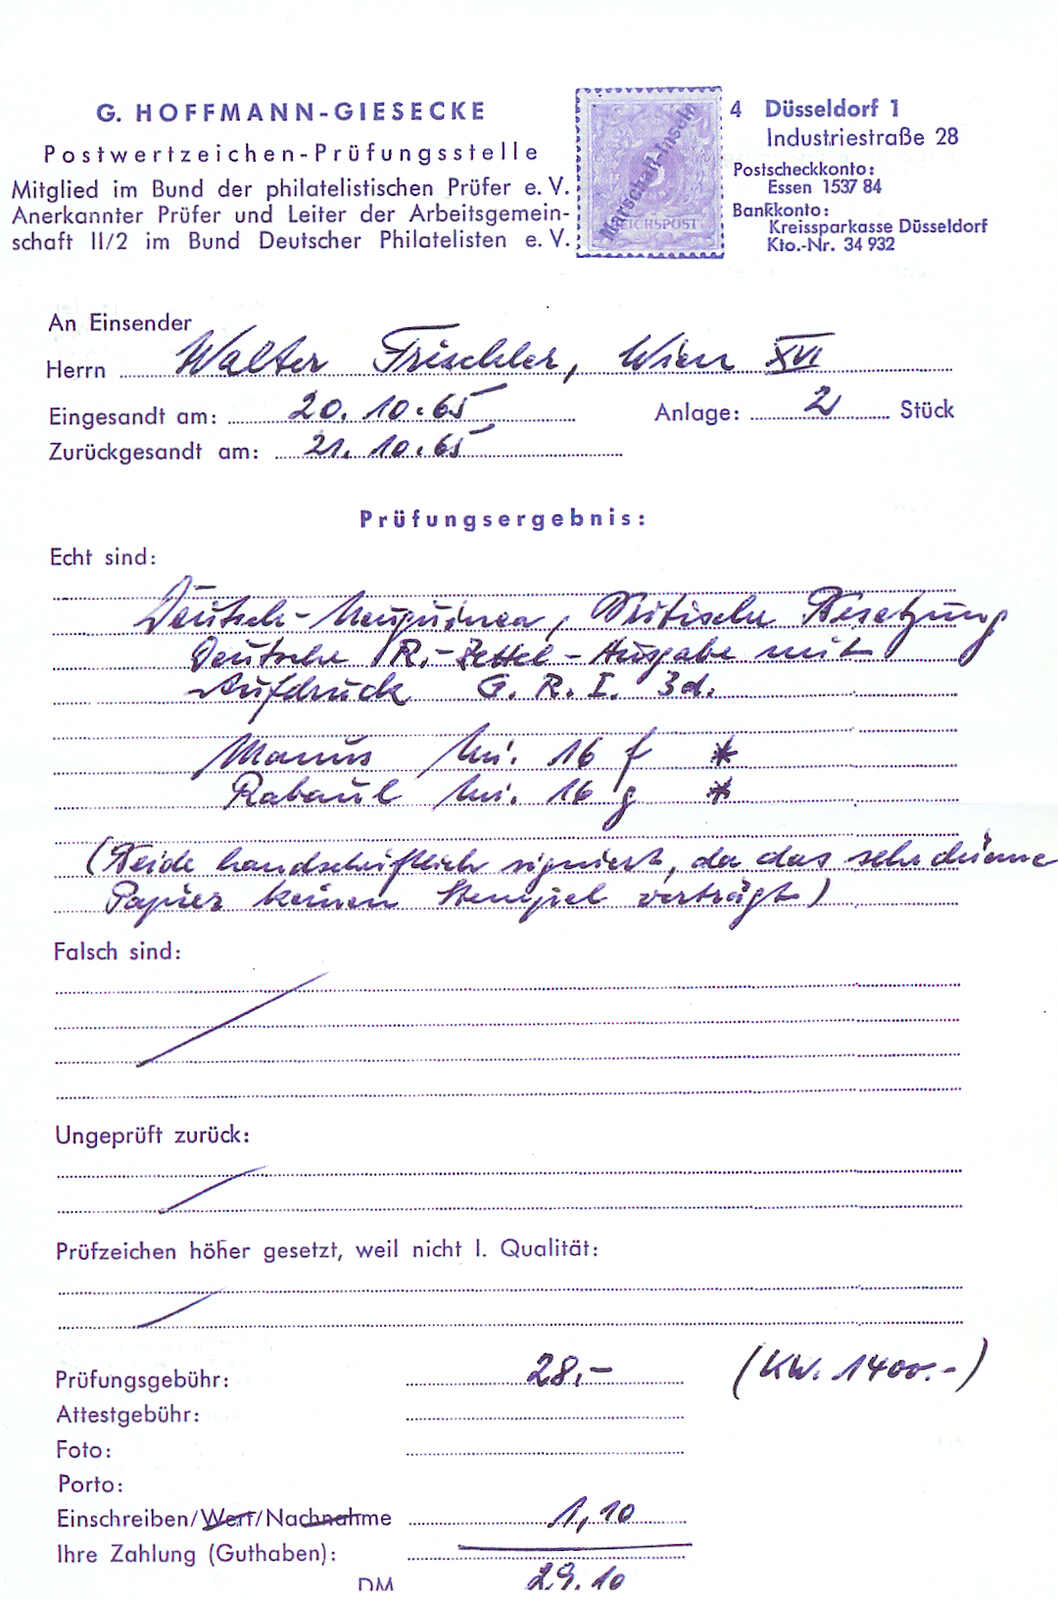 G. HOFFMANN-GIESECKE
Postwertzeichen-Prüfungsstelle
Mitglied im Bund der philatelistischen Prüfer e. V.
Anerkannter Prüfer und Leiter der Arbeitsgemein-
schaft II/2 im Bund Deutscher Philatelisten e. V.
Marschall-Inseln
REICHSPOST
4 Düsseldorf 1
Industriestraße 28
Postscheckkonto:
Essen 1537 84
Bankkonto:
Kreissparkasse Düsseldorf
Kto.-Nr. 34 932
An Einsender
Herrn Walter Frischler, Wien XVI
Eingesandt am: 20.10.65 Anlage: 2 Stück
Zurückgesandt am: 21.10.65
Prüfungsergebnis:
Echt sind:
Deutsch-Neuguinea, Britische Besetzung
Deutsche R.-Zettel-Ausgabe mit
Aufdruck G. R. I. 3d.
Manus Mi. 16 f *
Rabaul Mi. 16 g *
(Beide handschriftlich signiert, da das sehr dünne
Papier keinen Stempel verträgt)
Falsch sind:
Ungeprüft zurück:
Prüfzeichen höher gesetzt, weil nicht I. Qualität:
Prüfungsgebühr: 28.- (KW. 1400.-)
Attestgebühr:
Foto:
Porto:
Einschreiben/Wert/Nachnahme 1,10
Ihre Zahlung (Guthaben):
DM 29.10